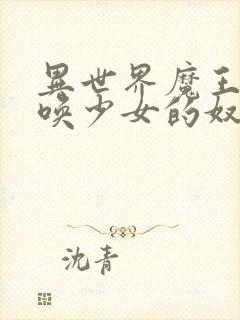 異世界魔王
唤少女的奴
沈青